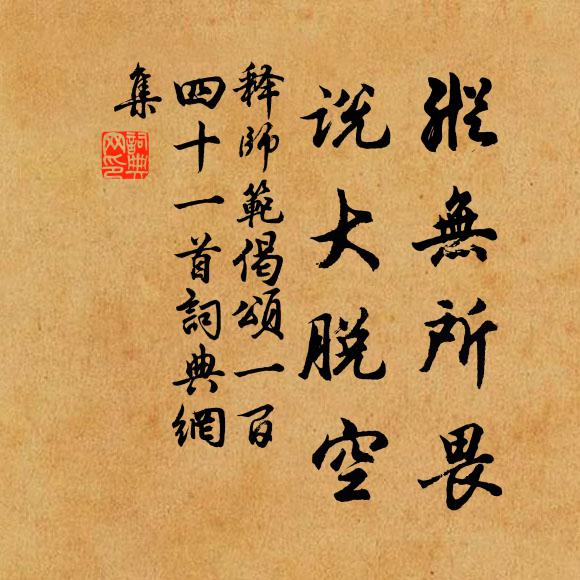 縱無所畏
說大脫空
釋師範偈頌一百
四十一首詞典網
集
詞典
网印